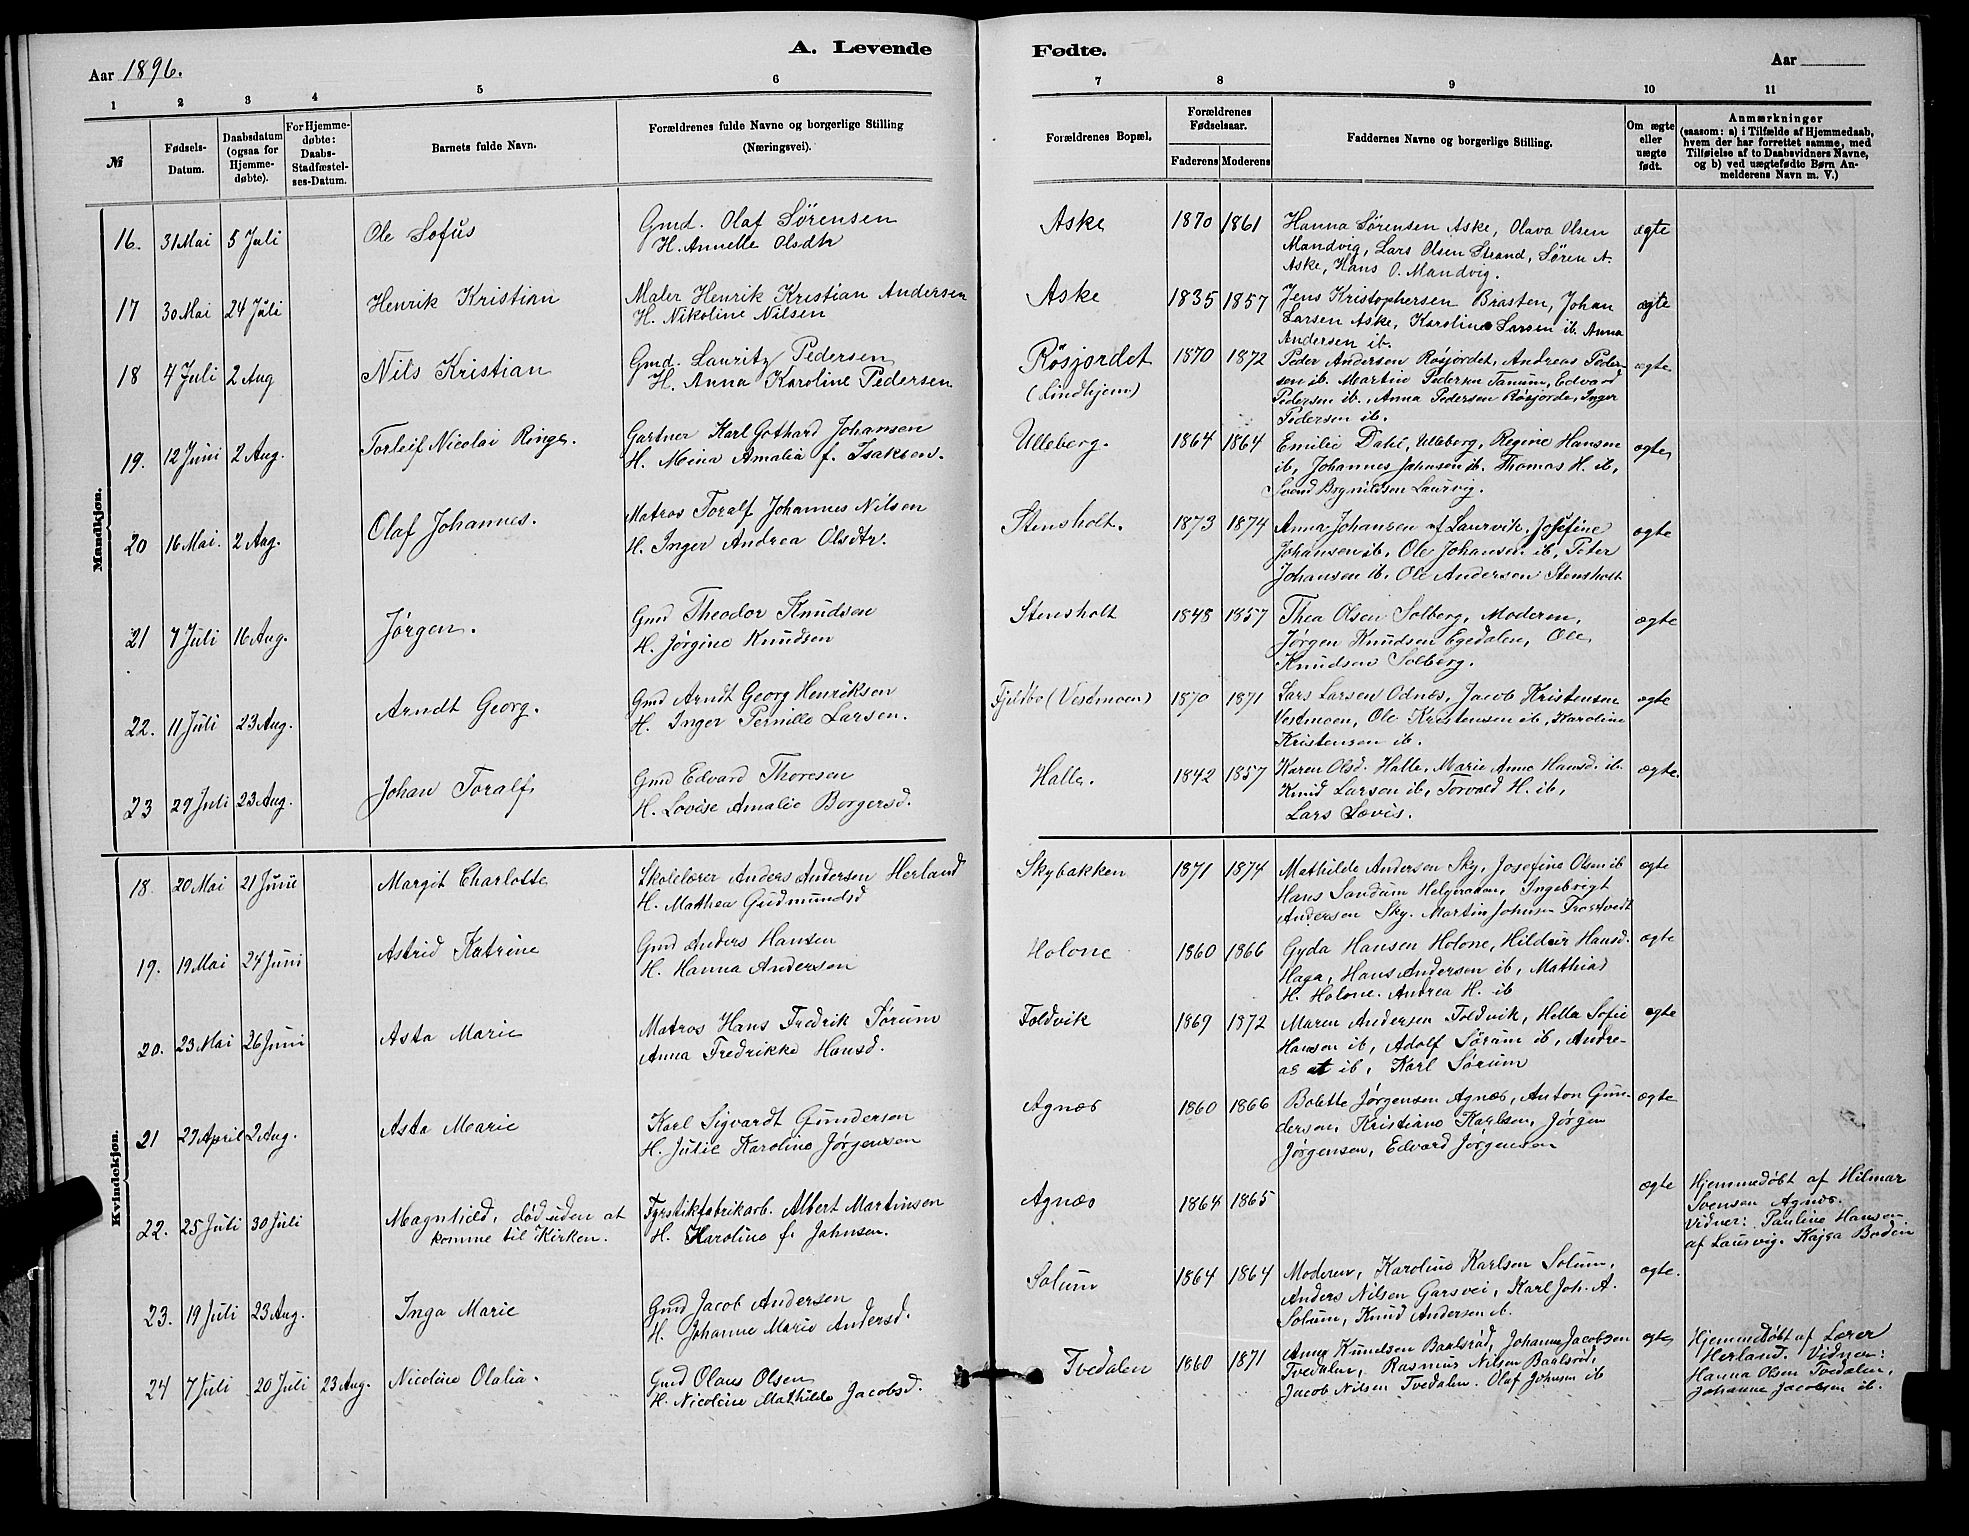 A. Levende
Aar 1896.
1 2 3 4 5 6
№
Fødsels-
Datum.
Daabsdatum
(ogsaa for
Hjemme-
døbte).
For Hjemme-
døbte:
Daabs-
Stadfæstel-
ses-Datum.
Barnets fulde Navn.
Forældrenes fulde Navne og borgerlige Stilling
(Næringsvei).
Mandkjøn.
16. 31 Mai 5 Juli Ole Sofus Gmd. Olaf Sørensen
H. Annette Olsdtr
17 30 Mai 24 Juli Henrik Kristian Maler Henrik Kristian Andersen
H. Nikoline Nilsen
18 4 Juli 2 Aug Nils Kristian Gmd. Lauritz Pedersen
H. Anna Karoline Pedersen
19. 12 Juni 2 Aug. Torleif Nicolai Ringe. Gartner Karl Gothard Johansen
H. Mina Amalia f. Isaksen.
20 16 Mai. 2 Aug. Olaf Johannes. Matros Toralf Johannes Nilsen
H. Inger Andrea Olsdtr.
21 7 Juli 16 Aug. Jørgen. Gmd Theodor Knudsen
H. Jørgine Knudsen
22. 11 Juli 23 Aug. Arndt Georg. Gmd Arndt Georg Henriksen
H. Inger Pernille Larsen.
23 29 Juli 23 Aug. Johan Toralf Gmd Edvard Thoresen
H. Lovise Amalie Borgersd.
Kvindekjøn.
18. 20 Mai 21 Juni Margit Charlotte Skolelærer Anders Andersen Herland
H. Mathea Gudmundsd
19. 19 Mai 24 Juni Astrid Katrine Gmd Anders Hansen
H. Hanna Andersen
20. 23 Mai 26 Juni Asta Marie Matros Hans Fredrik Sørum
Anna Fredrikke Hansd.
21 27 April 2 Aug. Asta Marie Karl Sigvardt Gundersen
H. Julie Karoline Jørgensen
22. 25 Juli 30 Juli Magnhild, død uden at
komme til Kirken.
Fyrstikfabrikarb. Albert Martinsen
H. Karoline f. Johnsen.
23. 19 Juli 23 Aug. Inga Marie Gmd Jacob Andersen
H. Johanne Marie Andersd.
24 7 Juli 20 Juli 23 Aug. Nicoline Olalia. Gmd Olaus Olsen
H. Nicoline Mathilde Jacobsd.
Fødte.
Aar
7 8 9 10 11
Forældrenes Bopæl.
Forældrenes
Fødselsaar.
Faderens Moderens
Faddernes Navne og borgerlige Stilling.
Om ægte
eller
uægte
født.
Anmærkninger
(saasom: a) i Tilfælde af Hjemmedaab,
hvem der har forrettet samme, med
Tilføielse af to Daabsvidners Navne,
og b) ved uægtefødte Børn An-
melderens Navn m. V.)
Aske 1870 1861 Hanna Sørensen Aske, Olava Olsen ægte
Mandvig, Lars Olsen Strand, Søren A.
Aske, Hans O. Mandvig.
Aske 1835 1857 Jens Kristophersen Brasten, Johan ægte
Larsen Aske, Karoline Larsen ib. Anna
Andersen ib.
Røsjordet 1870 1872 Peder Andersen Røsjordet, Andreas Peder- ægte
(Lindhjem) sen ib. Martin Pedersen Tanum, Edvard
Pedersen ib., Anna Pedersen Røsjorde, Inger
Pedersen ib.
Ulleberg. 1864 1864 Emilie Dahl, Ulleberg, Regine Hansen ægte
ib, Johannes Johnsen ib. Thomas H. ib,
Svend Bognildsen Laurvig.
Stensholt. 1873 1874 Anna Johansen af Laurvik, Josefine ægte
Johansen ib, Ole Johansen ib, Peter
Johansen ib. Ole Andersen Stensholt
Stensholt 1848 1857 Thea Olsen Solberg, Moderen, ægte
Jørgen Knudsen Egedalen, Ole
Knudsen Solberg.
Fjeldbo (Vestmoen) 1870 1871 Lars Larsen Odnæs, Jacob Kristensen ægte
Vestmoen, Ole Kristensen ib, Karoline
Kristensen ib.
Halle. 1842 1857 Karen Olsd. Halle, Marie Anne Hansd. ib. ægte.
Knud Larsen ib, Torvald H. ib,
Lars Sævis.
Skybakken 1871 1874 Mathilde Andersen Sky, Josefine Olsen ib ægte
Hans Sandum Helgeroen, Ingebrigt
Andersen Sky. Martin Johnsen Trostvedt
Holone 1860 1866 Gyda Hansen Holone, Hildur Hansd. ægte
Haga, Hans Andersen ib, Mathias
H. Holone. Andrea H. ib
Foldvik 1869 1872 Maren Andersen Foldvik, Hella Sofie ægte
Hansen ib, Adolf Sørum ib, Andre-
as A ib, Karl Sørum
Agnæs 1860 1866 Bolette Jørgensen Agnæs, Anton Gun- ægte
dersen, Kristiane Karlsen, Jørgen
Jørgensen, Edvard Jørgensen
Agnæs 1864 1865 ægte Hjemmedøbt af Hilmar
Svensen Agnæs.
Vidner: Pauline Hansen
af Laurvig. Kajsa Bodén
Solum 1864 1864 Moderen, Karoline Karlsen Solum, ægte.
Anders Nilsen Garsvei, Karl Joh. A.
Solum, Knud Andersen ib.
Tvedalen 1860 1871 Anne Knudsen Baalsrød, Johanne Jacobsen ægte
Tvedalen, Rasmus Nilsen Baalsrød,
Jacob Nilsen Tvedalen. Olaf Johnsen ib
Hjemmedøbt af Lærer
Herland. Vidner:
Hanna Olsen Tvedalen,
Johanne Jacobsen ib.